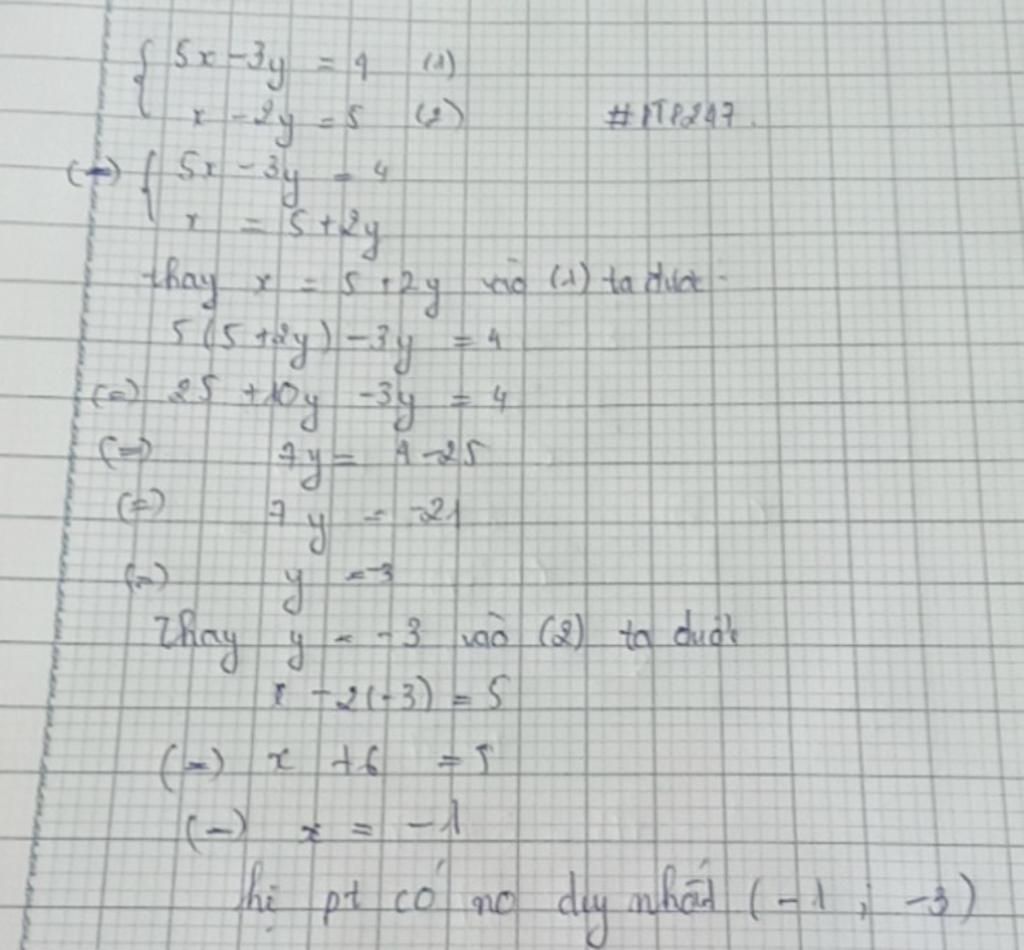 { 5x - 3y = 4 (1)
x - 2y = 5 (2) #PTP247.
(=) { 5x - 3y = 4
x = 5 + 2y
thay x = 5 + 2y vào (1) ta được
5(5 + 2y) - 3y = 4
(=) 25 + 10y - 3y = 4
(=) 7y = 4 - 25
(=) 7y = -21
(=) y = -3
Thay y = -3 vào (2) ta được
x - 2(-3) = 5
(=) x + 6 = 5
(=) x = -1
hệ pt có no duy nhất (-1 ; -3)